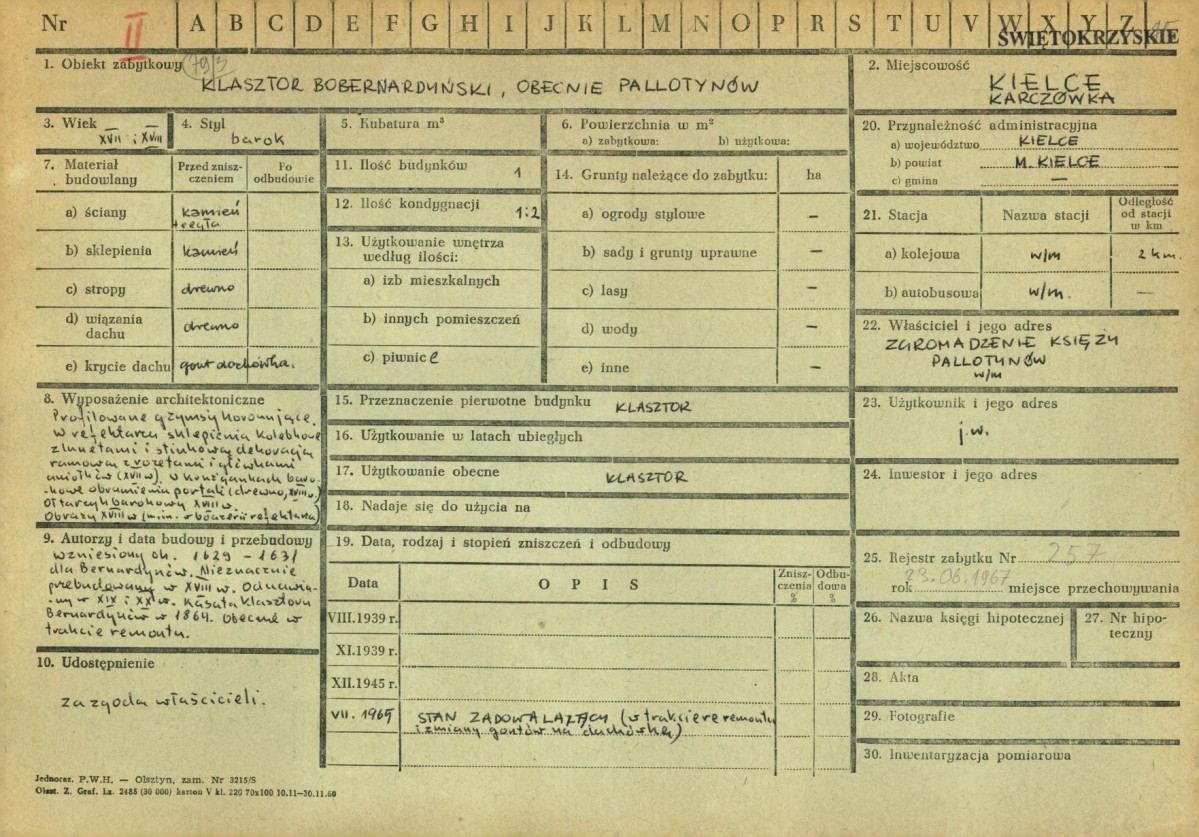 Nr II A B C D E F G H I J K L M N O P R S T U V W X Y Z
ŚWIĘTOKRZYSKIE
1. Obiekt zabytkowy
KLASZTOR BOBERNARDYŃSKI, OBECNIE PALLOTYNÓW
2. Miejscowość
KIELCE
KARCZÓWKA
3. Wiek
XVII i XVIII
4. Styl
barok
5. Kubatura m³
6. Powierzchnia w m²
a) zabytkowa: b) użytkowa:
7. Materiał budowlany
Przed zniszczeniem
Po odbudowie
a) ściany kamień
+ cegła
b) sklepienia kamień
c) stropy drewno
d) wiązania dachu drewno
e) krycie dachu gont dachówka.
8. Wyposażenie architektoniczne
Profilowane gzymsy koronujące.
w refektarzu sklepienia kolebkowe
z lunetami i stiukową dekoracją
ramową z rozetami i główkami
aniołków (XVII w). w krużgankach baro-
-kowe obramienia portali (drewno, XVIII w.)
Ołtarzyk barokowy XVIII w.
Obrazy XVIII w (m.in. refektarza)
9. Autorzy i data budowy i przebudowy
wzniesiony ok. 1629 - 1631
dla Bernardynów. Nieznacznie
przebudowany w XVIII w. Odnawia-
-ny w XIX i XX w. Kasata Klasztoru
Bernardynów w 1864. Obecnie w
trakcie remontu.
10. Udostępnienie
za zgodą właścicieli.
11. Ilość budynków 1
12. Ilość kondygnacji 1:2
13. Użytkowanie wnętrza
według ilości:
a) izb mieszkalnych
b) innych pomieszczeń
c) piwnic
14. Grunty należące do zabytku: ha
a) ogrody stylowe –
b) sady i grunty uprawne –
c) lasy –
d) wody –
e) inne –
15. Przeznaczenie pierwotne budynku KLASZTOR
16. Użytkowanie w latach ubiegłych
17. Użytkowanie obecne KLASZTOR
18. Nadaje się do użycia na
19. Data, rodzaj i stopień zniszczeń i odbudowy
Data OPIS Zniszczenia % Odbudowa %
VIII.1939 r.
XI.1939 r.
XII.1945 r.
VII. 1965 STAN ZADOWALAJĄCY (w trakcie remontu
i zmiany gontów na dachówkę)
20. Przynależność administracyjna
a) województwo KIELCE
b) powiat M. KIELCE
c) gmina —
21. Stacja Nazwa stacji Odległość od stacji w km
a) kolejowa w/m 2 km.
b) autobusowa w/m. —
22. Właściciel i jego adres
ZGROMADZENIE KSIĘŻY
PALLOTYNÓW
w/m
23. Użytkownik i jego adres
j.w.
24. Inwestor i jego adres
25. Rejestr zabytku Nr 257
rok 23.06.1967 miejsce przechowywania
26. Nazwa księgi hipotecznej
27. Nr hipoteczny
28. Akta
29. Fotografie
30. Inwentaryzacja pomiarowa
Jednoraz. P.W.H. — Olsztyn, zam. Nr 3215/S
Olszt. Z. Graf. Lz. 2485 (30 000) karton V kl. 220 70x100 10.11—30.11.60